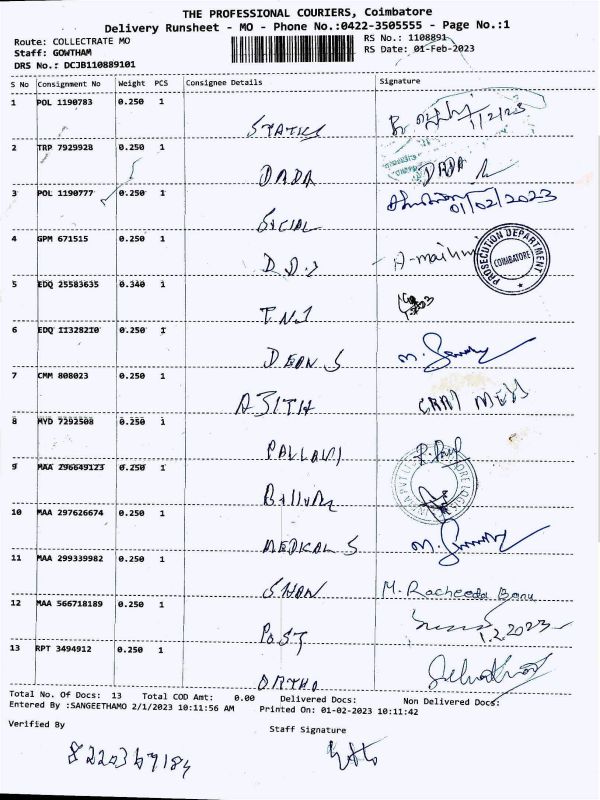 THE PROFESSIONAL COURIERS, Coimbatore
Delivery Runsheet - MO - Phone No.:0422-3505555 - Page No.:1
Route: COLLECTRATE MO
RS No.: 1108891
Staff: GOWTHAM
RS Date: 01-Feb-2023
DRS No.: DCJB110889101
S No Consignment No Weight PCS Consignee Details Signature
1 POL 1190783 0.250 1
1/2/23
2 TRP 7929928 0.250 1
DADA DADA
3 POL 1190777 0.250 1
01/02/2023
SOCIAL
4 GPM 671515 0.250 1
PROSECUTION DEPARTMENT
COIMBATORE
5 EDQ 25583635 0.340 1
6 EDQ 11328210 0.250 1
DEAN S
7 CMM 808023 0.250 1
AJITH
8 MYD 7292508 0.250 1
PALLAVI
9 MAA 296649123 0.250 1
10 MAA 297626674 0.250 1
MEDICAL S
11 MAA 299339982 0.250 1
M. Racheeda Banu
12 MAA 566718189 0.250 1
POST 1.2.2023
13 RPT 3494912 0.250 1
ORTHO
Total No. Of Docs: 13 Total COD Amt: 0.00 Delivered Docs: Non Delivered Docs:
Entered By :SANGEETHAMO 2/1/2023 10:11:56 AM Printed On: 01-02-2023 10:11:42
Verified By
Staff Signature
8220369184